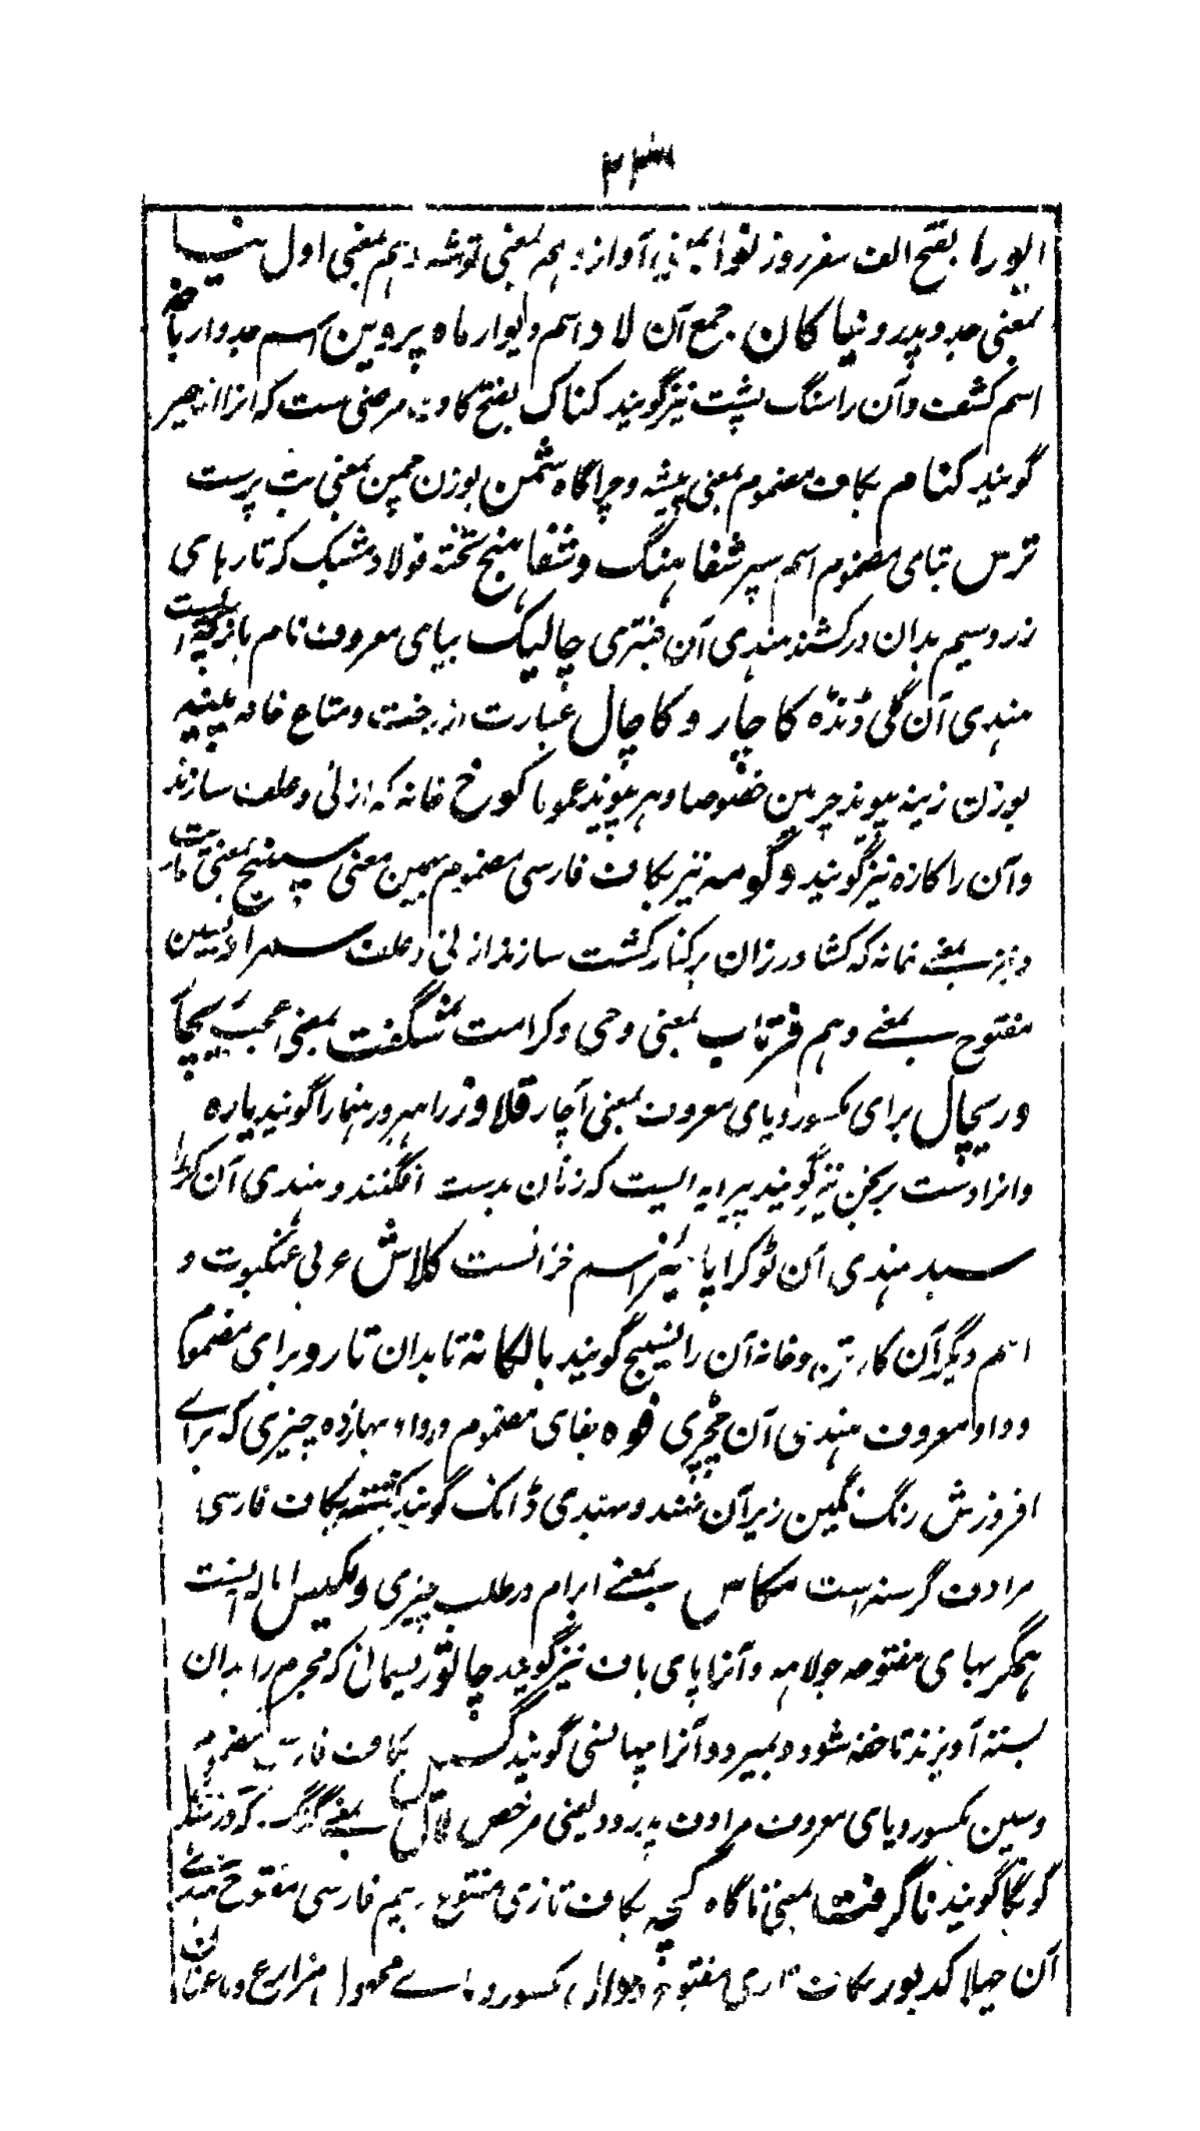 ایورا بفتح الف سفر روز نوا بمعنی آواز و هم بمعنی توشه و هم بمعنی اول نیا
بمعنی جد و پدر و نیاکان جمع آن لاد اسم دیوار ماه پروین اسم جدوار باخه
اسم کشف و آن را سنگ پشت نیز گویند کناک بفتح کاف مرضی ست که آنرا زحیر
گویند کنام بکاف مضموم بمعنی بیشه و چراگاه شمن بوزن چمن بمعنی بت پرست
ترس بتای مضموم اسم سپر شفاهنگ و شفاهنج تخته فولاد مشبک که تارهای
زر و سیم بدان درکشند هندی آن جنتری چالیک بیای معروف نام بازیچه ایست
هندی آن گلی ڈنڈه کاچار و کاچال عبارت از رخت و متاع خانه پینه
بوزن زینه پیوند چرمین خصوصا و هر پیوند عموما کوخ خانه که از نی و علف سازند
و آن را کازه نیز گویند و گومه نیز بکاف فارسی مضموم بهمین معنی سپنج بمعنی عاریت
و نیز بمعنی خانه که کشاورزان بر کنار کشت سازند از نی و علف سمراد بسین
مفتوح بمعنی وهم فرتاب بمعنی وحی و کرامت شگفت بمعنی عجب ریچار
و ریچال برای مکسور و یای معروف بمعنی آچار قلاوز راهبر و رهنما را گویند یاره
و آنرا دست برنجن نیز گویند پیرایه ایست که زنان بدست افگنند و هندی آن کڑا
سبد هندی آن ٹوکرا پائیز اسم خزانست کلاش عربی عنکبوت و
اسم دیگر آن کارتن و خانه آن را نسیج گویند بالکانه تابدان تارو برای مضموم
و واو معروف هندی آن چچڑی فوه بفای مضموم و واو بهازده چیزی که برای
افروزش رنگ نگین زیر آن نهند و بهندی ڈانک گویند گشنه بکاف فارسی
مرادف گرسنه است مکاس بمعنی ابرام در طلب چیزی و مکیس اماله آنست
هنگر بهای مفتوحه جولاهه و آنرا پای باف نیز گویند چالو ریسمانی که مجرم را بدان
بسته آویزند تا خفه شود و بمیرد و آنرا پهانسی گویند گسیل بکاف فارسی مضموم
و سین مکسور و یای معروف مرادف پدرود یعنی مرخص لال بمعنی گنگ که آنرا
گونگا گویند ناگرفت بمعنی ناگاه کچه بکاف تازی مفتوح و جیم فارسی مفتوح هندی
آن چهلا کدیور بکاف تازی مفتوح و دال مکسور و یای مجهول مزارع و باغبان